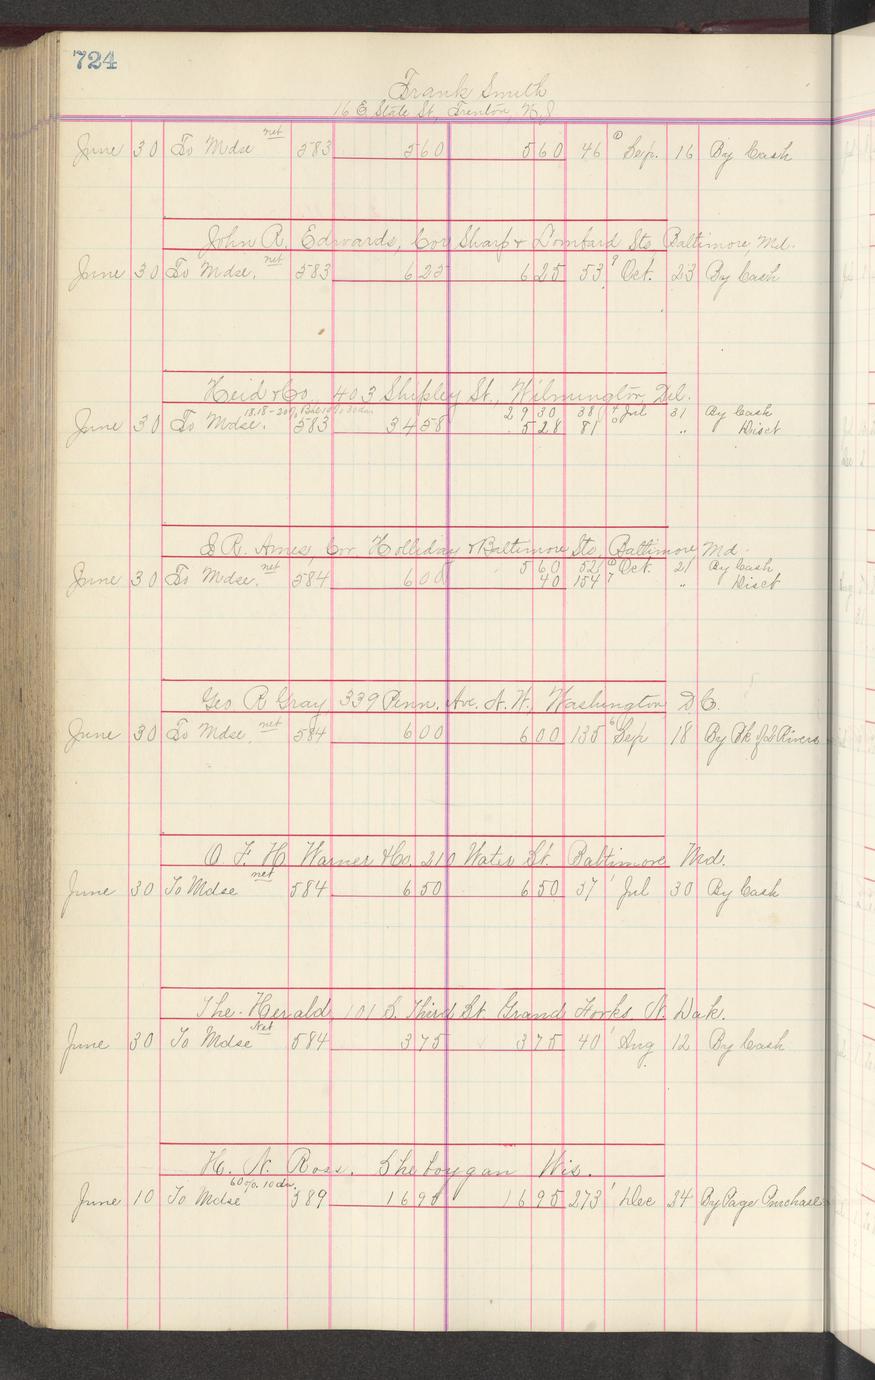 724
Frank Smith
16 E. State St, Trenton, N.J
June 30 To Mdse net 583 560 560 46 Sep. 16 By Cash
John R. Edwards, Cor Sharp & Lombard Sts Baltimore, Md.
June 30 To Mdse. net 583 625 625 53 9 Oct. 23 By Cash
Heid & Co., 403 Shipley St., Wilmington, Del.
June 30 To Mdse. 583 3458 2930 38 Jul 31 By Cash
528 81 " Disct
S R. Ames, Cor. Holliday & Baltimore Sts, Baltimore Md.
June 30 To Mdse. net 584 600 560 52 Oct. 21 By Cash
40 154 7 " Disct
Geo R Gray 339 Penn. Ave. N. W., Washington D C.
June 30 To Mdse. net 584 600 600 135 6 Sep 18 By Bk
O. F. H. Warner & Co. 210 Water St. Baltimore Md.
June 30 To Mdse net 584 650 650 37 1 Jul 30 By Cash
The Herald 101 S. Third St Grand Forks N. Dak.
June 30 To Mdse Net 584 375 375 40 1 Aug 12 By Cash
H. N. Ross. Sheboygan Wis.
June 10 To Mdse 60 % 10 da. 589 1695 1695 273 1 Dec 24 By Page Purchase